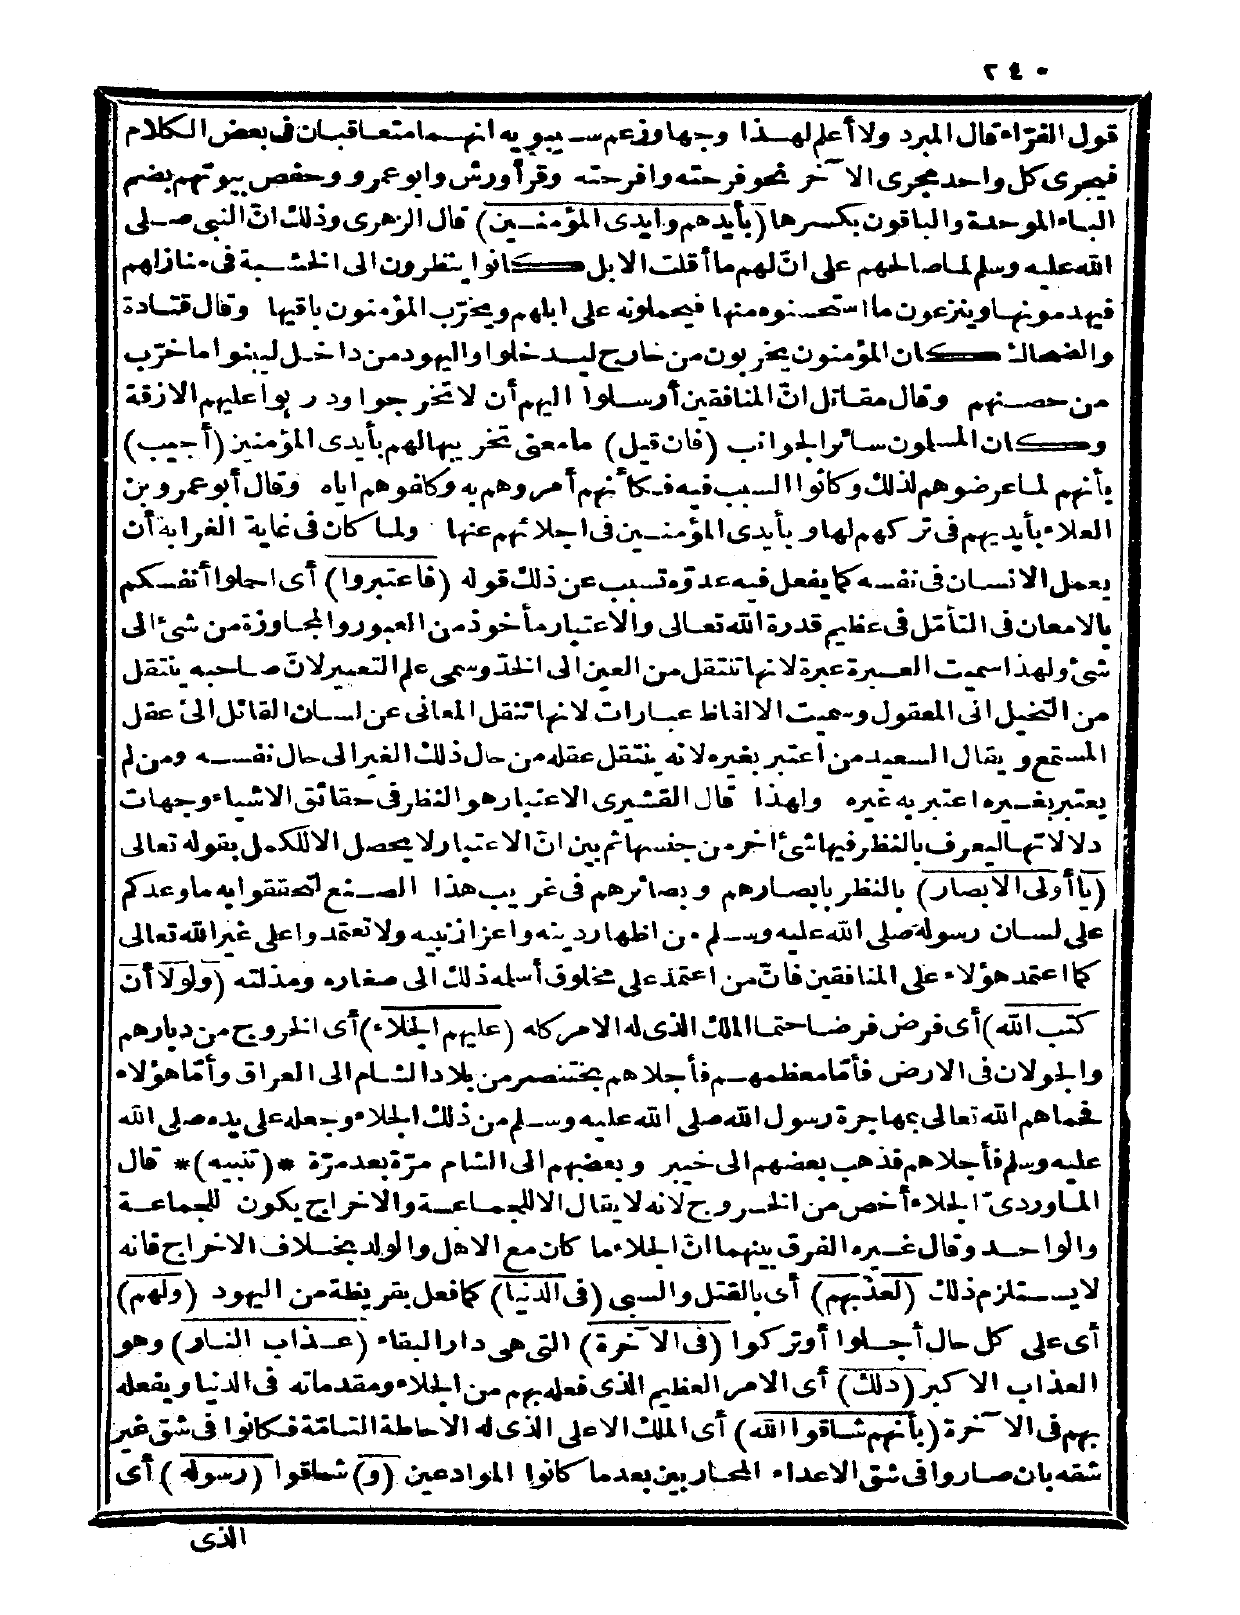 ٢٤٠
قول الفرّاء قال المبرد ولا أعلم لهذا وجها وزعم سيبويه انهما متعاقبان فى بعض الكلام
فيجرى كل واحد مجرى الآخر نحو فرحته وافرحته وقرأ ورش وابو عمرو وحفص بيوتهم بضم
الباء الموحدة والباقون بكسرها (بأيديهم وايدى المؤمنين) قال الزهرى وذلك انّ النبى صلى
الله عليه وسلم لما صالحهم على انّ لهم ما أقلت الابل كانوا ينظرون الى الخشبة فى منازلهم
فيهدمونها وينزعون ما استحسنوه منها فيحملونه على ابلهم ويخرّب المؤمنون باقيها وقال قتادة
والضحاك كان المؤمنون يخربون من خارج ليدخلوا واليهود من داخل ليبنوا ما خرّب
من حصنهم وقال مقاتل انّ المنافقين أرسلوا اليهم أن لا تخرجوا ودربوا عليهم الازقة
وكان المسلمون سائر الجوانب (فان قيل) ما معنى تخريبها لهم بأيدى المؤمنين (أجيب)
بأنهم لما عرضوهم لذلك وكانوا السبب فيه فكأنهم أمروهم به وكلفوهم اياه وقال أبو عمرو بن
العلاء بأيديهم فى تركهم لها وبأيدى المؤمنين فى اجلائهم عنها ولما كان فى غاية الغرابة أن
يعمل الانسان فى نفسه كما يفعل فيه عدوّه تسبب عن ذلك قوله (فاعتبروا) أى احملوا أنفسكم
بالامعان فى التأمّل فى عظيم قدرة الله تعالى والاعتبار مأخوذ من العبور والمجاوزة من شئ الى
شئ ولهذا سميت العبرة عبرة لانها تنتقل من العين الى الخدّ وسمى علم التعبير لانّ صاحبه ينتقل
من التخيل الى المعقول وسميت الالفاظ عبارات لانها تنقل المعانى عن لسان القائل الى عقل
المستمع ويقال السعيد من اعتبر بغيره لانه ينتقل عقله من حال ذلك الغير الى حال نفسه ومن لم
يعتبر بغيره اعتبر به غيره ولهذا قال القشيرى الاعتبار هو النظر فى حقائق الاشياء وجهات
دلالاتها ليعرف بالنظر فيها شئ اخر من جنسها ثم بين انّ الاعتبار لا يحصل الا للكمل بقوله تعالى
(يا أولى الابصار) بالنظر بابصارهم وبصائرهم فى غريب هذا الصنع لتحققوا به ما وعدكم
على لسان رسوله صلى الله عليه وسلم من اظهار دينه واعزاز نبيه ولا تعتمدوا على غير الله تعالى
كما اعتمد هؤلاء على المنافقين فانّ من اعتمد على مخلوق أسلمه ذلك الى صغاره ومذلته (ولولا أن
كتب الله) أى فرض فرضا حتما الملك الذى له الامر كله (عليهم الجلاء) أى الخروج من ديارهم
والجولان فى الارض فأمّا معظمهم فأجلاهم بختنصر من بلاد الشام الى العراق وأمّا هؤلاء
فحماهم الله تعالى بمهاجرة رسول الله صلى الله عليه وسلم من ذلك الجلاء وجعله على يده صلى الله
عليه وسلم فأجلاهم فذهب بعضهم الى خيبر وبعضهم الى الشام مرّة بعد مرّة *(تنبيه)* قال
الماوردىّ الجلاء أخص من الخروج لانه لا يقال الا للجماعة والاخراج يكون للجماعة
والواحد وقال غيره الفرق بينهما انّ الجلاء ما كان مع الاهل والولد بخلاف الاخراج فانه
لا يستلزم ذلك (لعذبهم) أى بالقتل والسبى (فى الدنيا) كما فعل بقريظة من اليهود (ولهم)
أى على كل حال أجلوا أو تركوا (فى الآخرة) التى هى دار البقاء (عذاب النار) وهو
العذاب الاكبر (ذلك) أى الامر العظيم الذى فعله بهم من الجلاء ومقدماته فى الدنيا ويفعله
بهم فى الآخرة (بأنهم شاقوا الله) أى الملك الاعلى الذى له الاحاطة التامّة فكانوا فى شق غير
شقه بان صاروا فى شق الاعداء المحاربين بعدما كانوا الموادعين (و) شاقوا (رسوله) أى
الذى